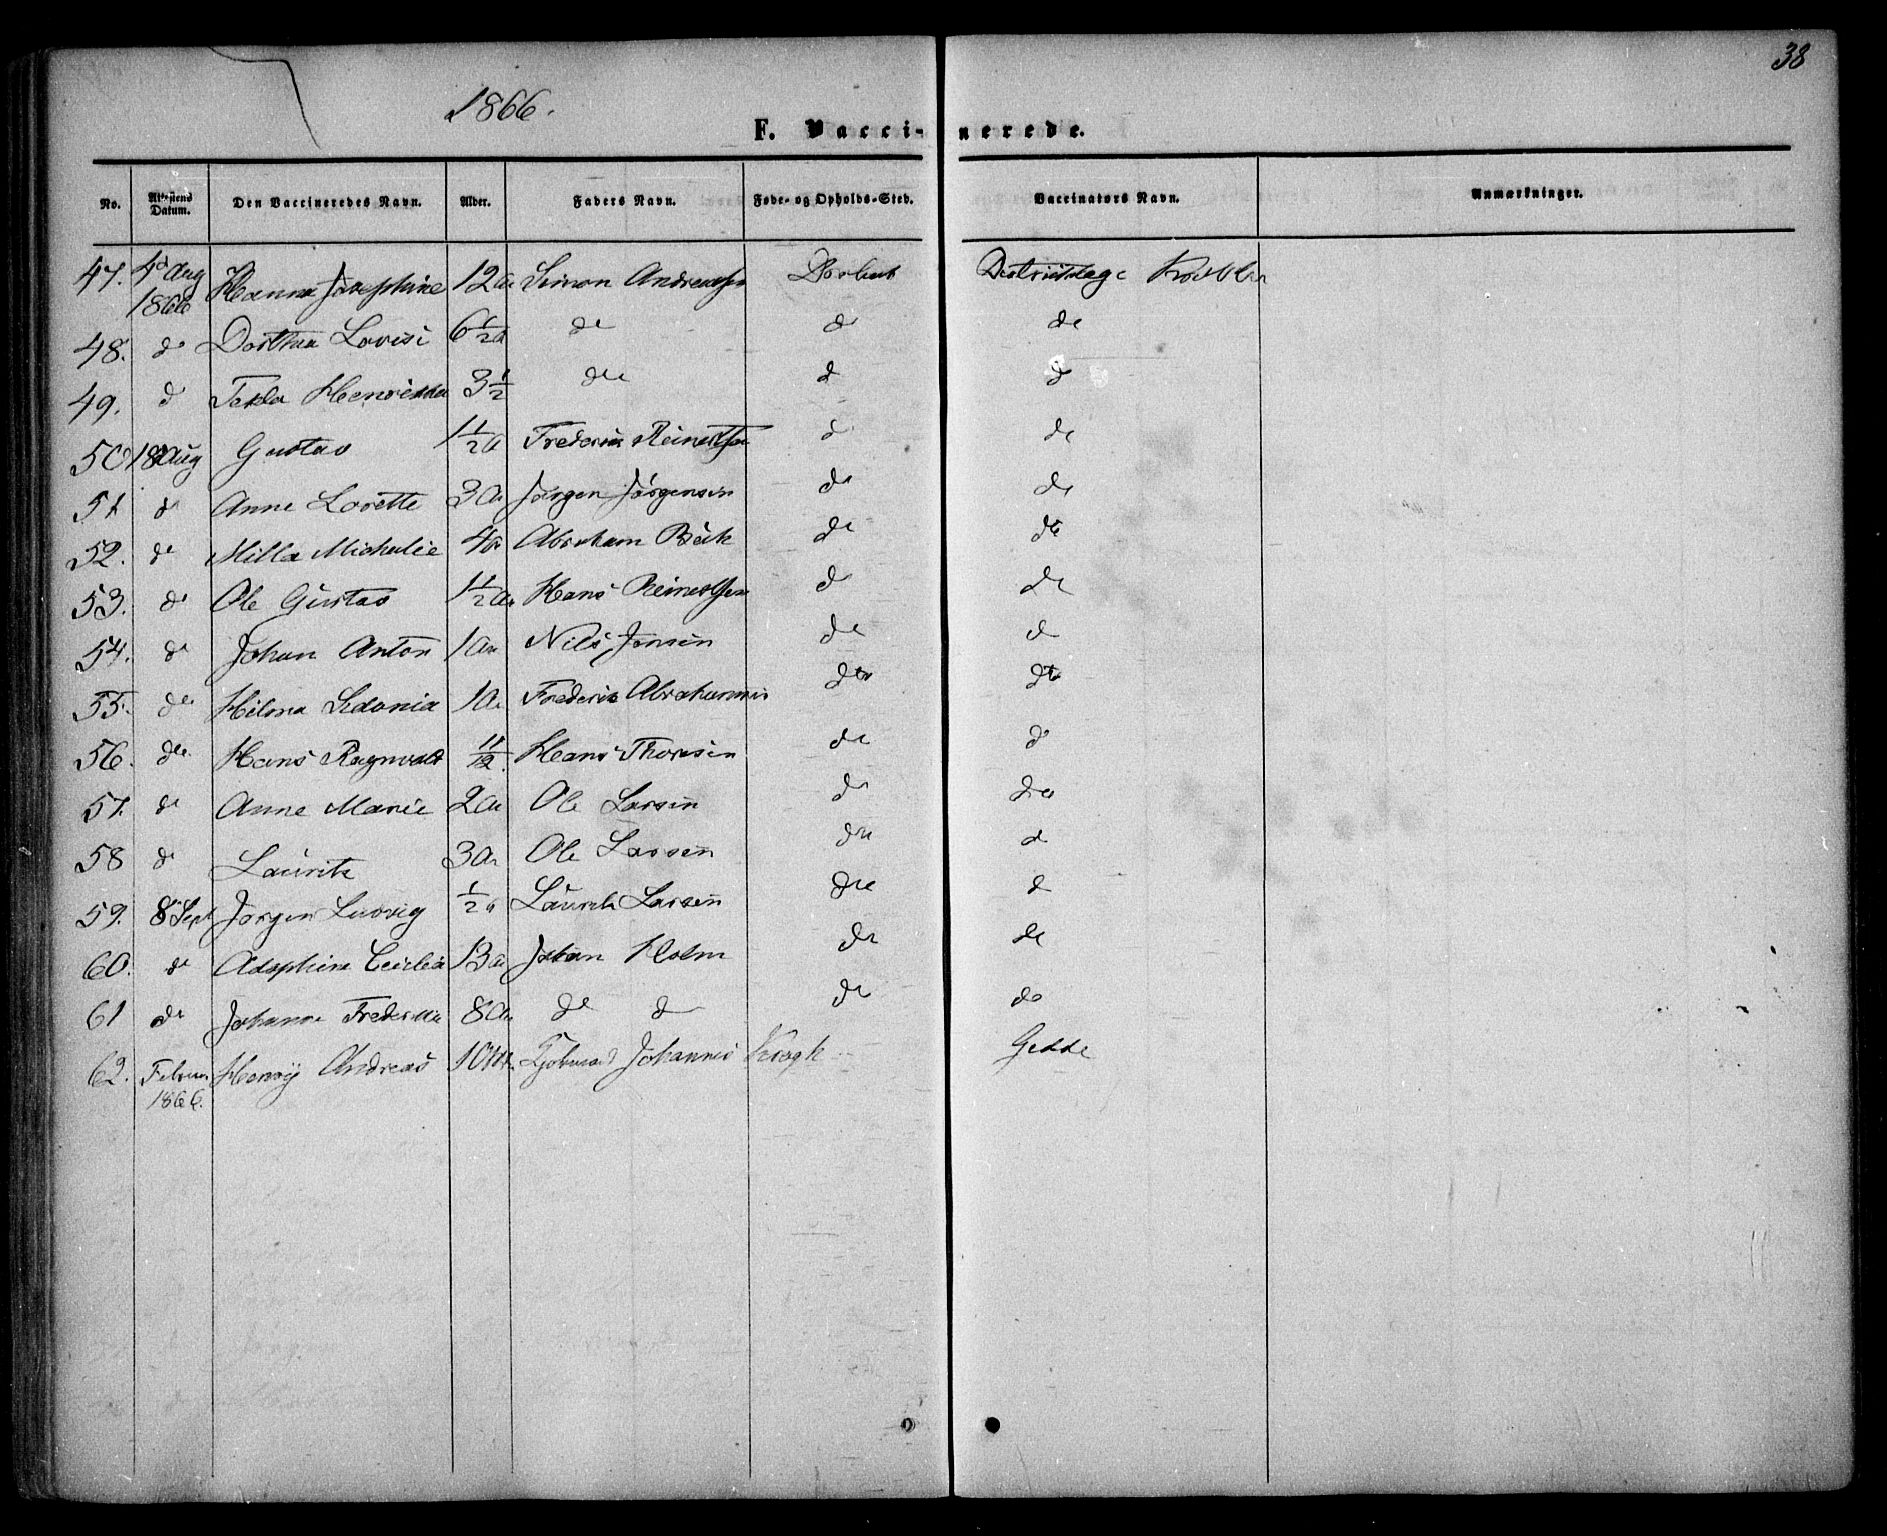 38
1866.
F. Vaccinerede.
No. Attestens Datum. Den Vaccineredes Navn. Alder. Faders Navn. Føde- og Opholds-Sted. Vaccinators Navn. Anmærkninger.
47. 4d Aug 1866 Hanna Josephine 12a Simon Andreassen
48. do Dorthea Lovise 6 1/2 a do do do
49. do Tekla 3 1/2 do do do
50 18 Aug Gustav 1 1/2 a Frederik Reinertsen do do
51 do Anne Lovette 3a Jørgen Jørgensen do do
52. do Milla 4a Abraham do do
53. do Ole Gustav 1 1/2 a Hans Reinertsen do do
54. do Johan Anton 1a Nils Jensen do do
55. do Hilma Sedonia 1a Frederik do do
56. do Hans Ragnvald 11/12 Hans Thoresen do do
57. do Anne Marie 2a Ole Larsen do do
58 do Lauritz 3a Ole Larsen do do
59. 8 Sept Jørgen Ludvig 1/2 a Lauritz Larsen do do
60. do Cecilia 13a Johan Holm do do
61 do Johanne 8a do do do do
62. Februar 1866. Henrij Andreas Johannes Krogh Gedde